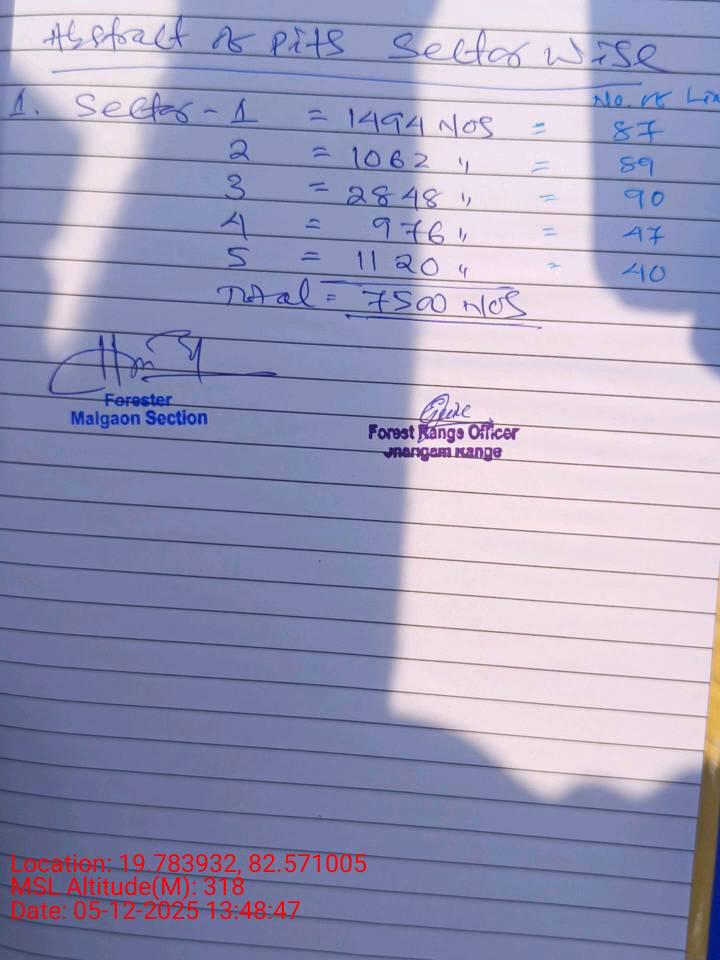 Abstract of Pits Sector wise
No. of Lin
1. Sector - 1 = 1494 Nos = 87
2 = 1062 " = 89
3 = 2848 " = 90
4 = 976 " = 47
5 = 1120 " = 40
Total = 7500 Nos
Forester
Malgaon Section
Forest Range Officer
Range
Location: 19.783932, 82.571005
MSL Altitude(M): 318
Date: 05-12-2025 13:48:47